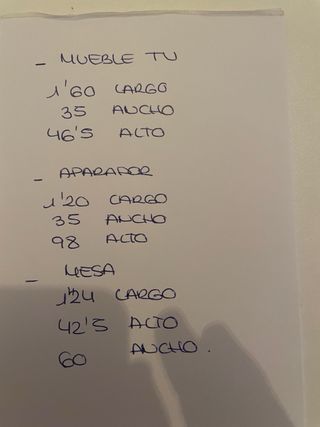 - MUEBLE TV
1'60 LARGO
35 ANCHO
46'5 ALTO
- APARADOR
1'20 LARGO
35 ANCHO
98 ALTO
- MESA
1'24 LARGO
42'5 ALTO
60 ANCHO.